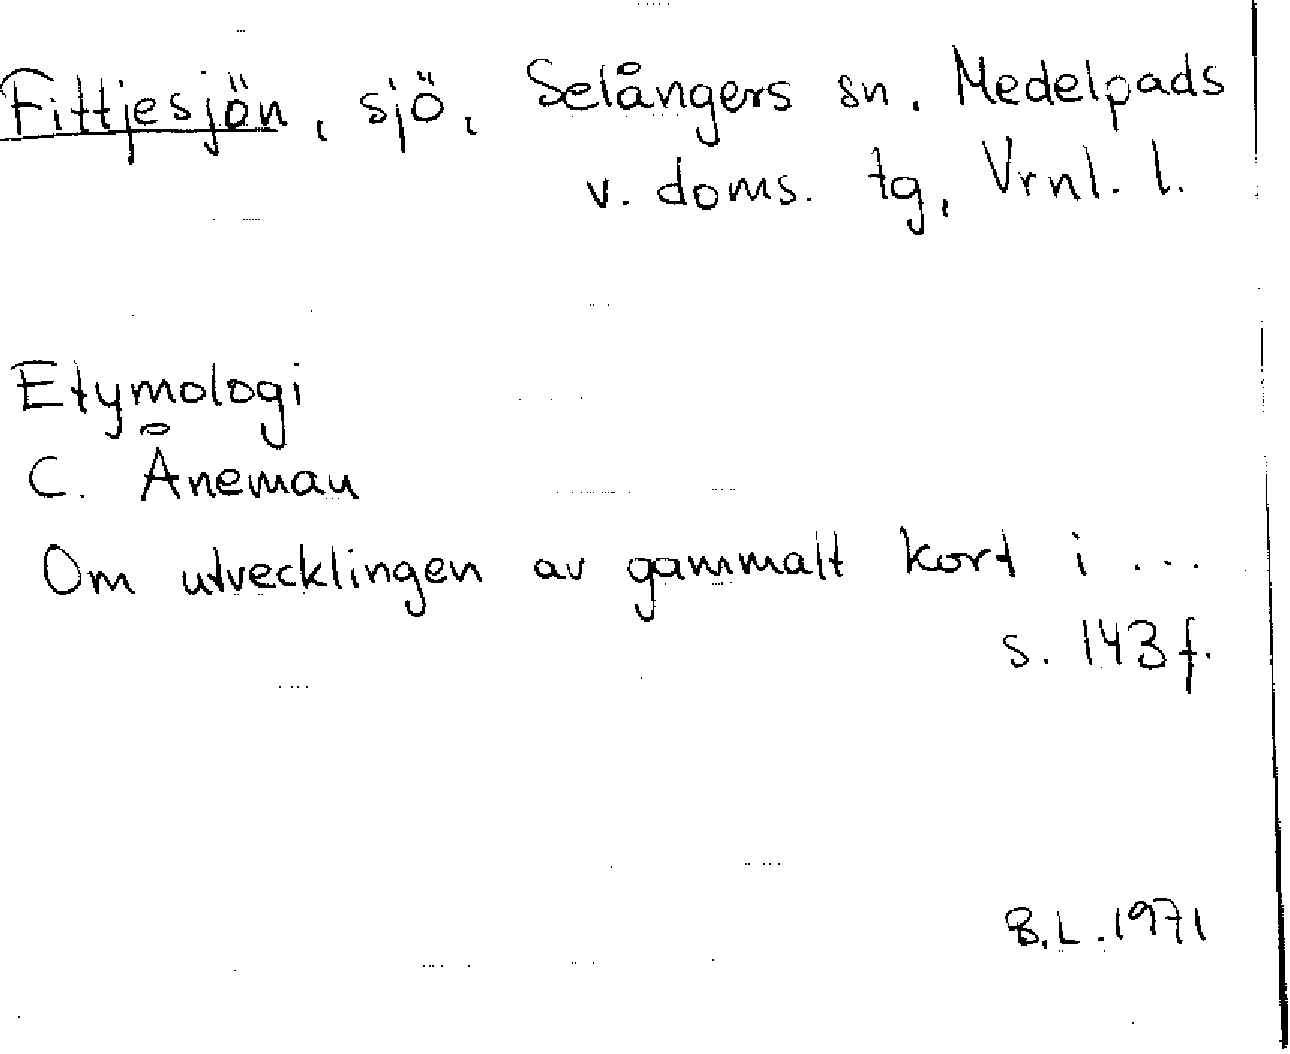 Fittjesjön, sjö, Selångers sn. Medelpads
v. doms. tg, Vrnl. l.
Etymologi
C. Åneman
Om utvecklingen av gammalt kort i ...
s. 143 f.
B.L. 1971